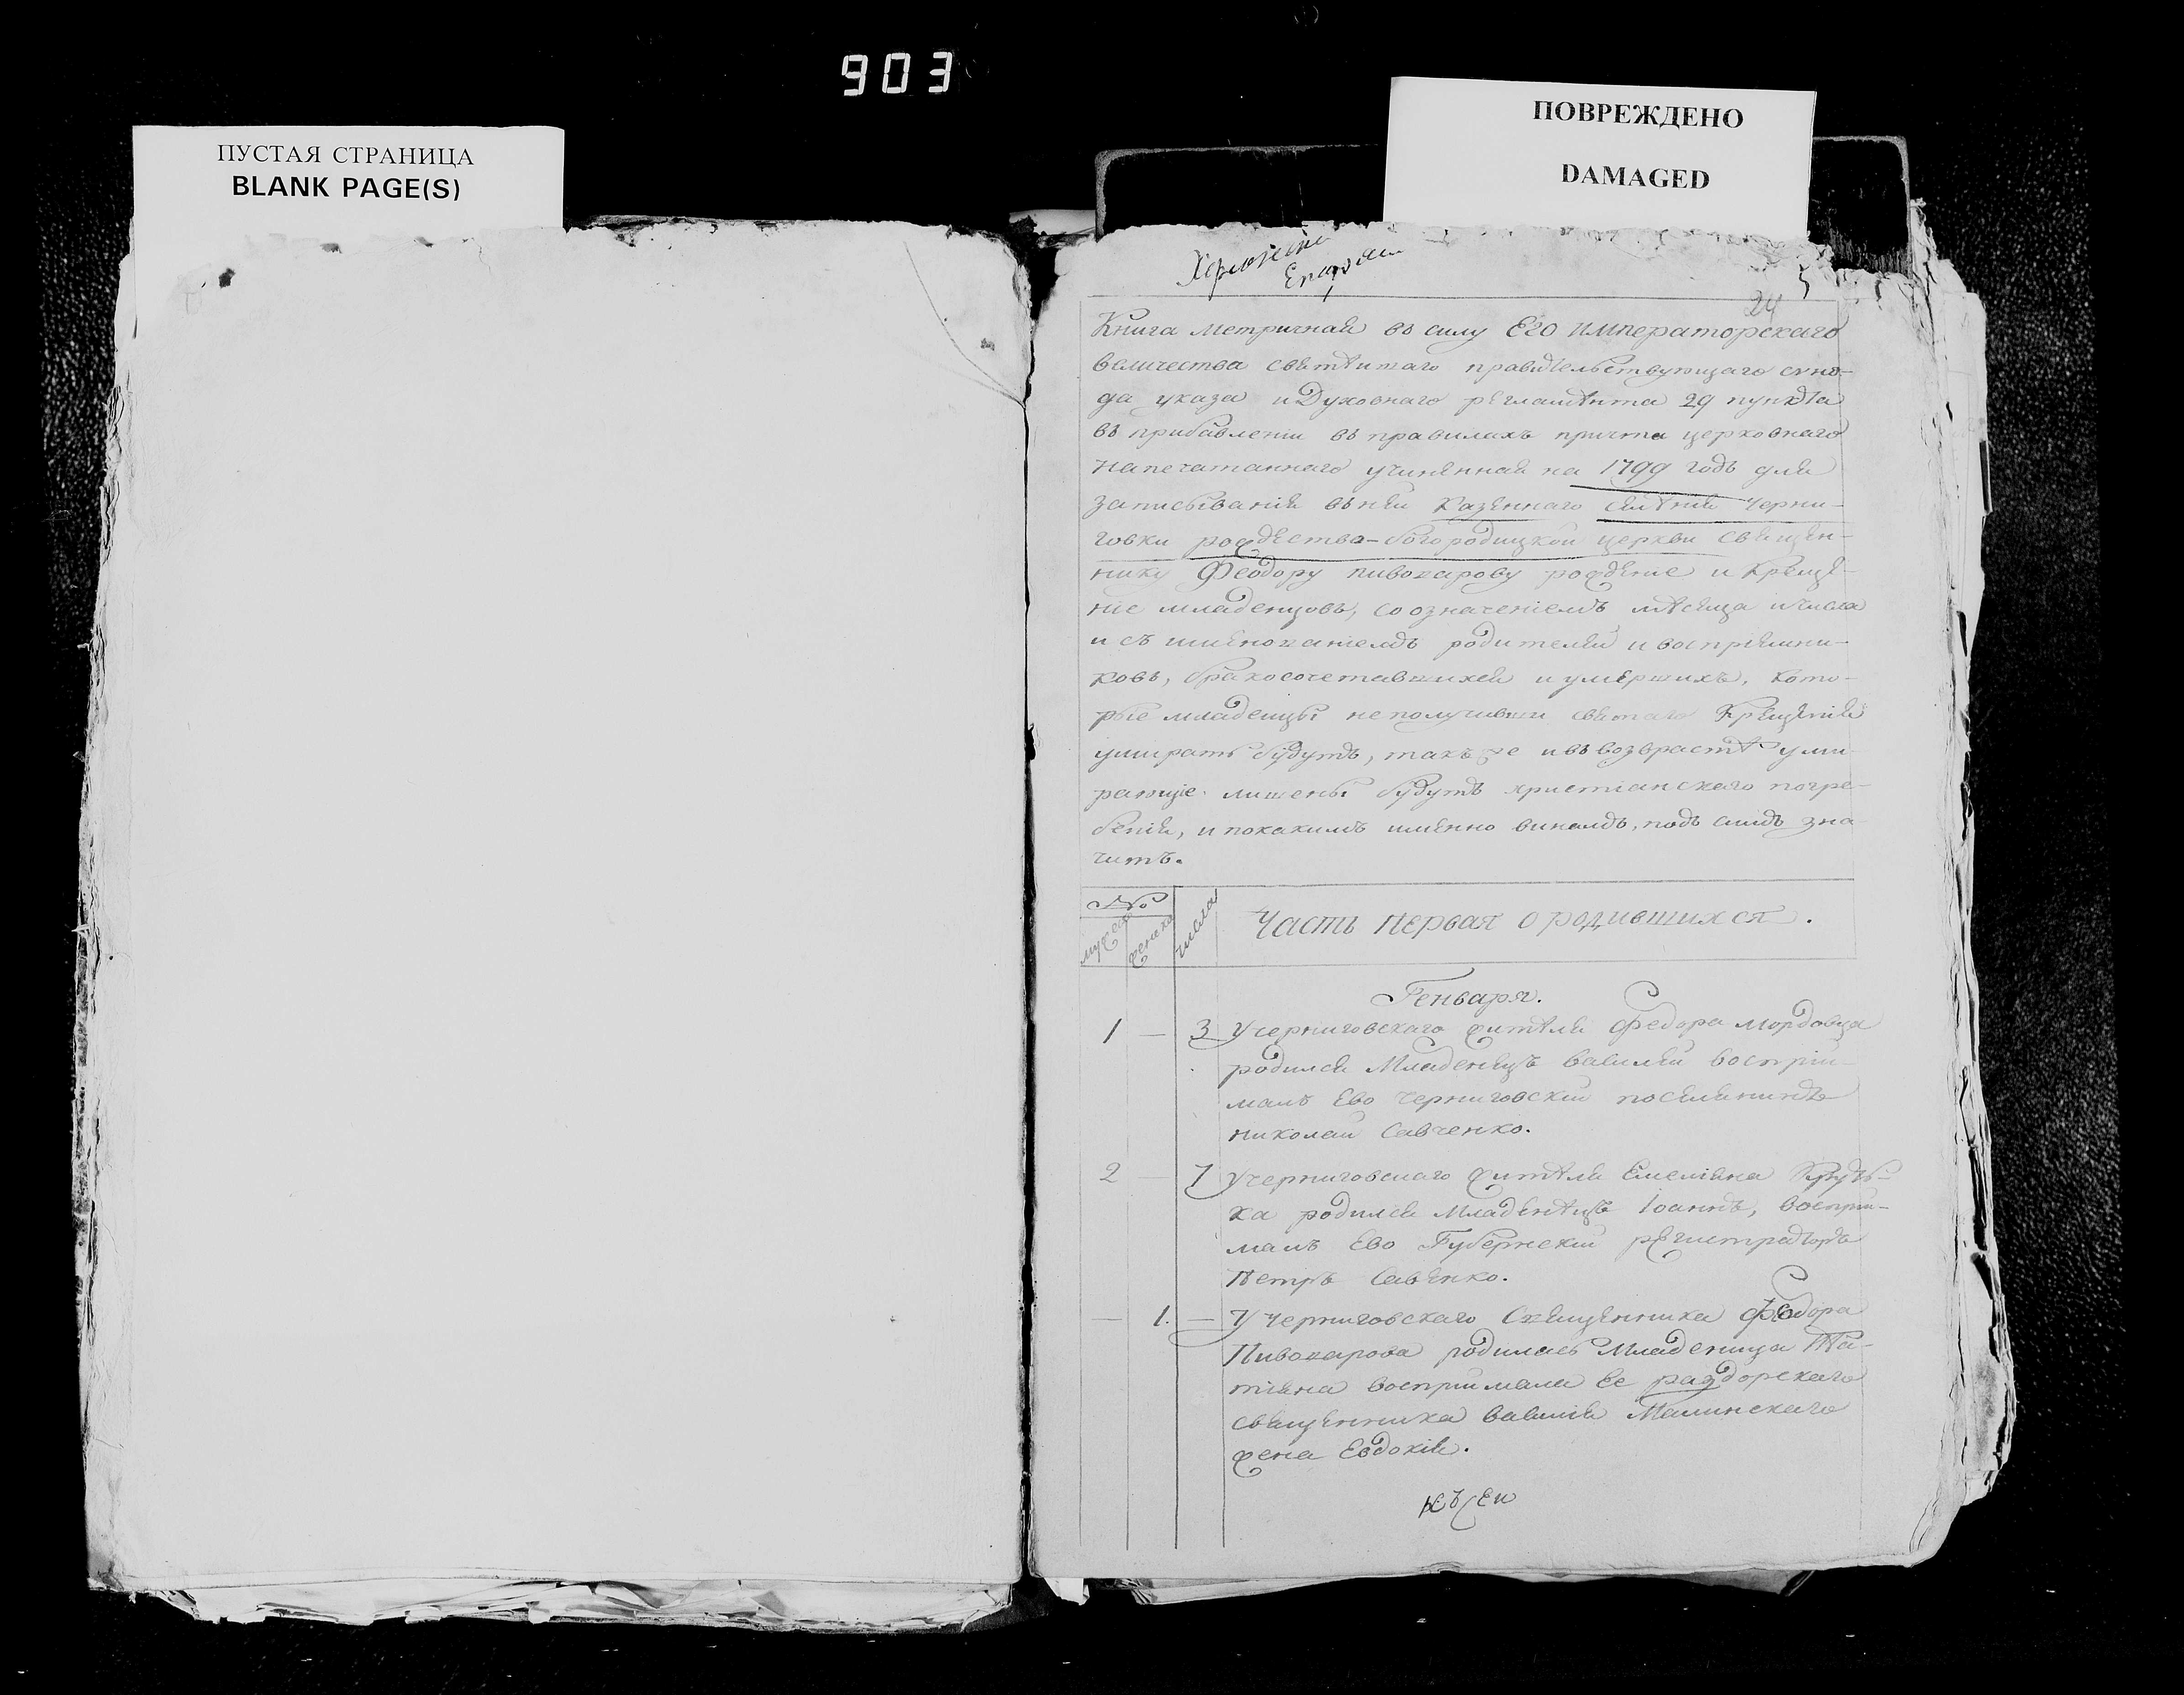 903
ПУСТАЯ СТРАНИЦА
BLANK PAGE(S)
ПОВРЕЖДЕНО
DAMAGED
24
Книга метричная въ силу Его императорскаго
величества святѣйшаго правительствующаго сѵно-
да указа и Духовнаго регламѣнта 29 пункта
въ прибавленіи въ правилахъ причта церковнаго
напечатаннаго учинѣнная на 1799 годъ для
записыванія въ нѣи казѣннаго селѣнія черни-
говки рождества-богородицкой церкви священ-
нику Феодору пивоварову рождѣние и Креще-
ніе младенцовъ, со означеніемъ мѣсяца и числа
и съ имѣнованіемъ родителей и воспріемни-
ковъ, бракосочетавшихся и умершихъ. Кото-
рые младенцы неполучивши святаго Крещѣнія
умирать будутъ, такъже и въ возврастѣ уми-
рающіе лишены будутъ христіанскаго погре-
бѣнія, и покакимъ имѣнно винамъ, подъ симъ зна-
читъ.
№
мужеска
женска
числа
Часть первая о родившихся.
Генваря.
1 — 3 У черниговскаго жителя Федора мордовца
родился Младенецъ василѣй воспріи-
малъ Ево черниговскій поселянинъ
николай Савченко.
2 — 7 У черниговскаго жителя Емеліяна
ка родился младѣнецъ Іоаннъ, воспри-
малъ Ево Губернскій регистраторъ
Петръ Савѣнко.
— 1. — У черниговскаго Священника Феодора
Пивоварова родилась младеница Та-
тіяна восприимала ее раздорскаго
священника василія Малинскаго
жена Евдокія.